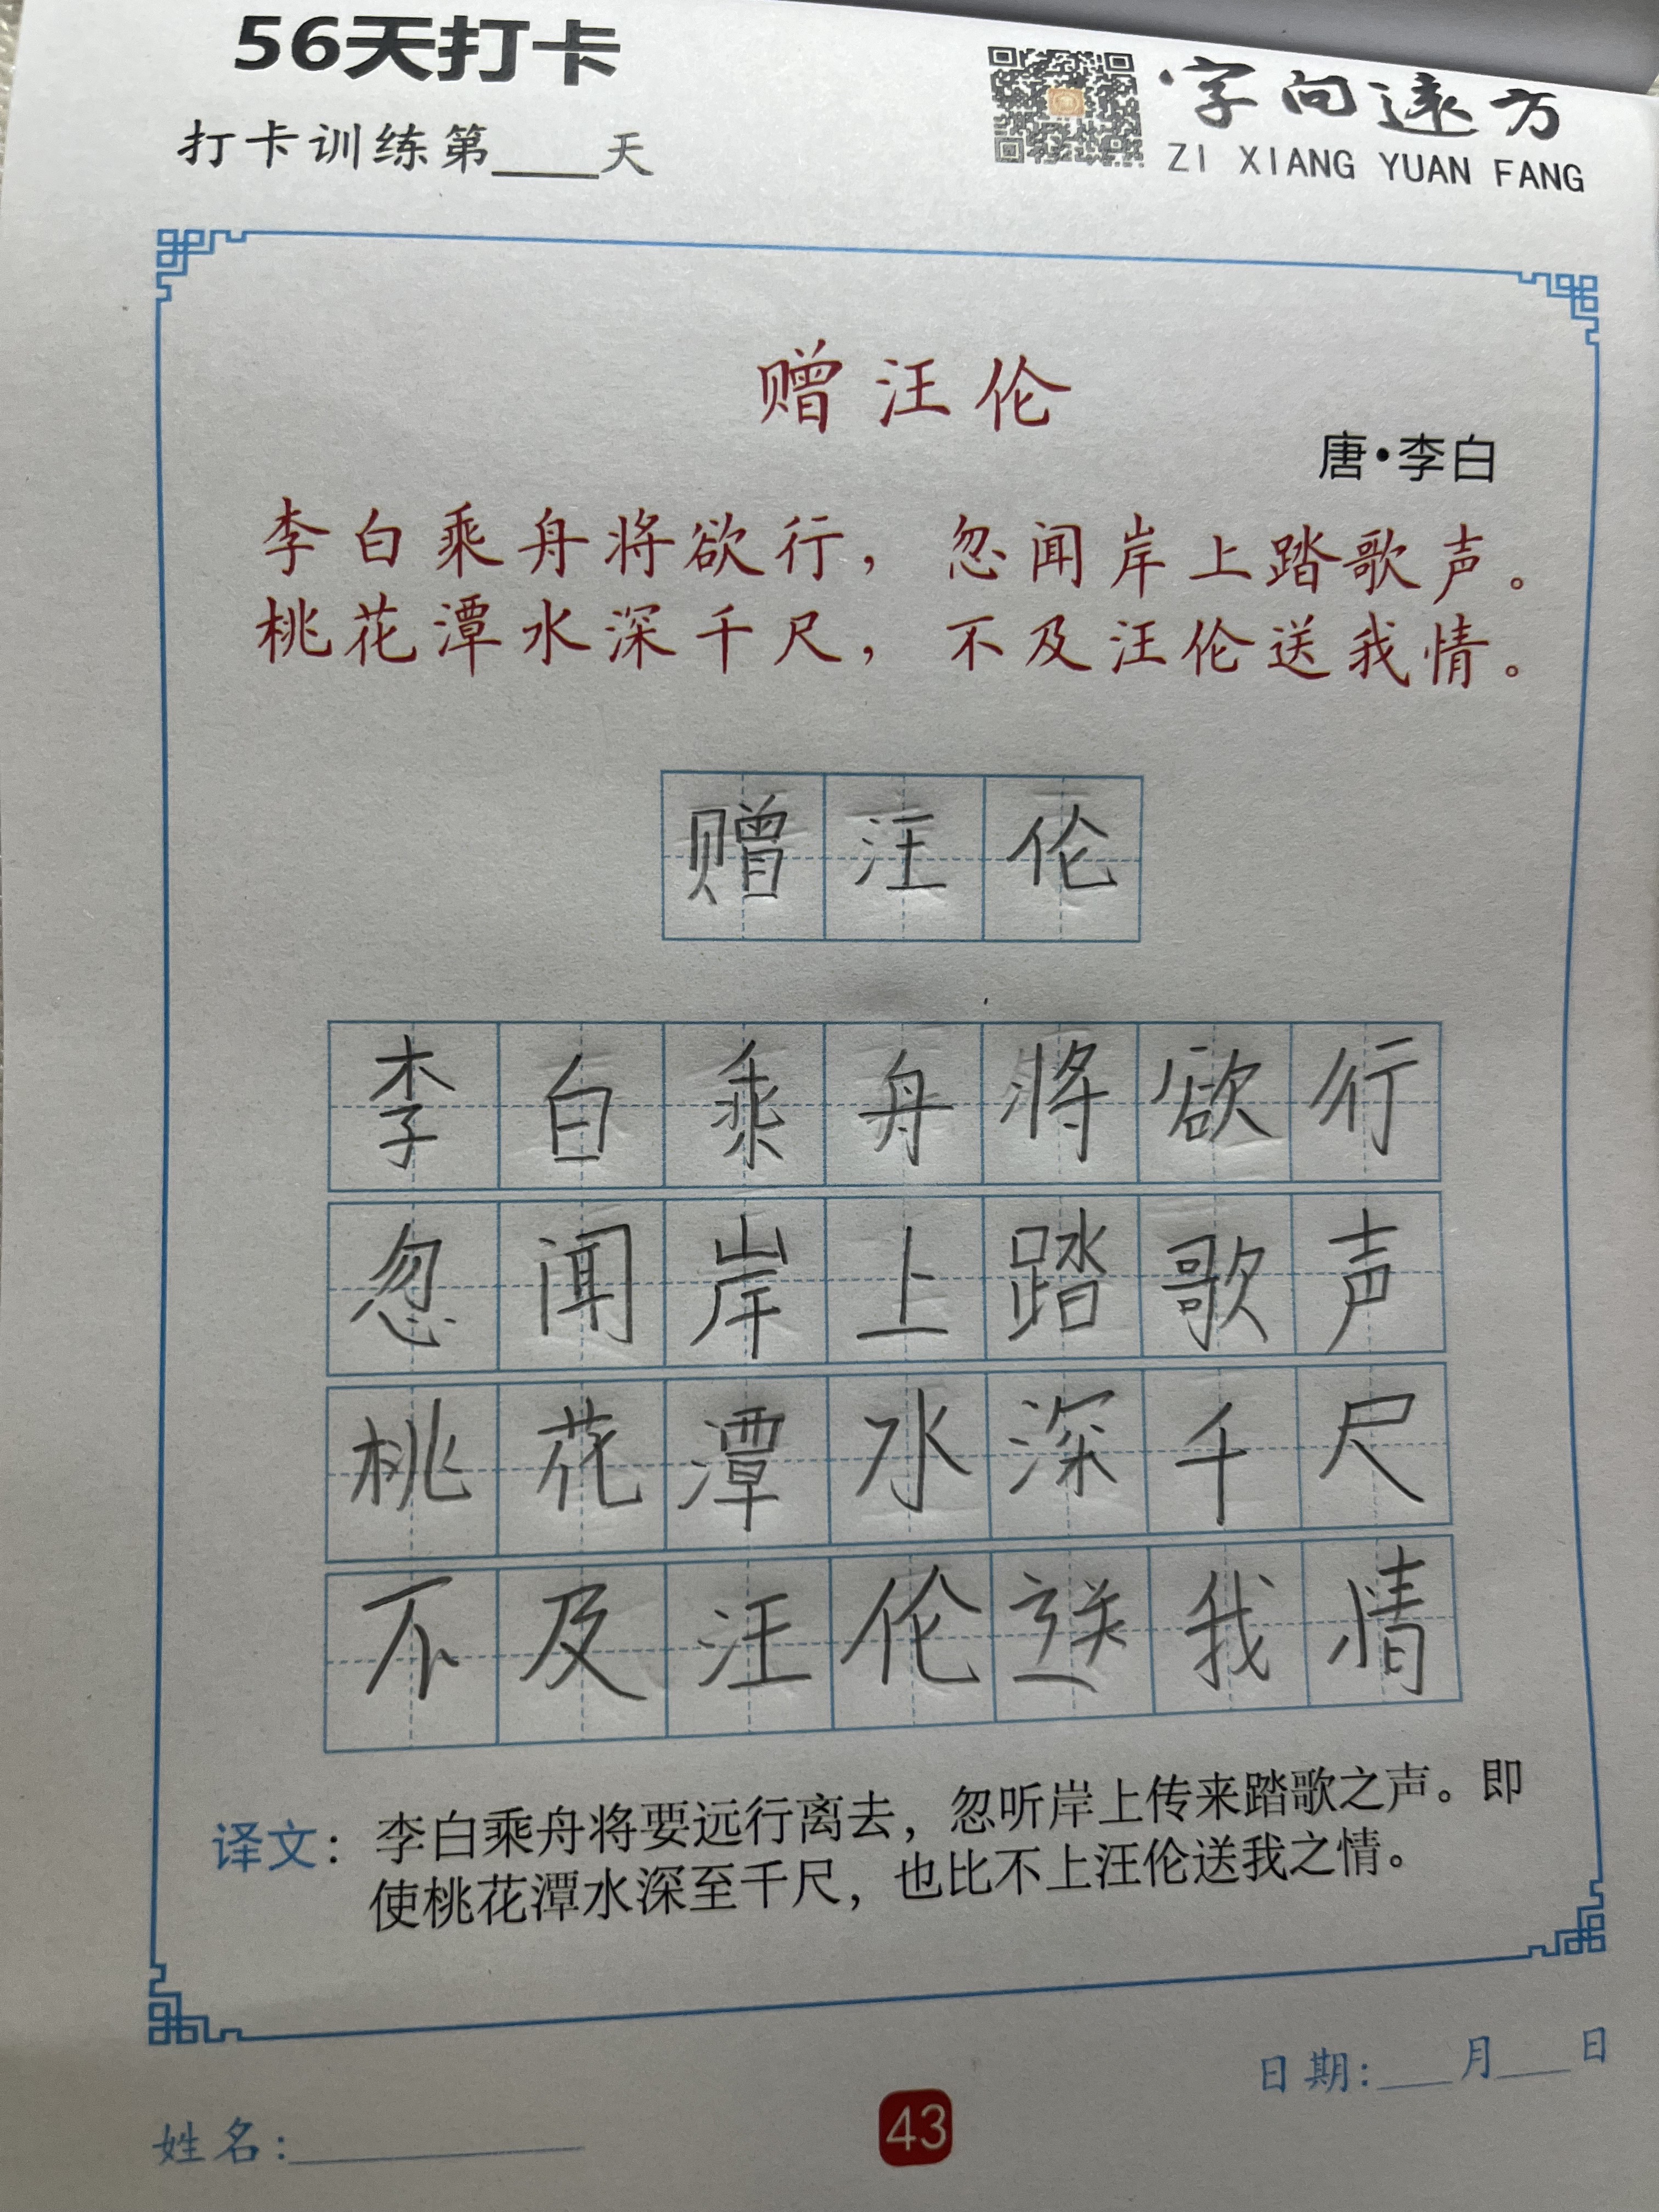 56天打卡
打卡训练第____天
字向远方
ZI XIANG YUAN FANG
赠汪伦
唐·李白
李白乘舟将欲行，忽闻岸上踏歌声。
桃花潭水深千尺，不及汪伦送我情。
赠汪伦
李白乘舟将欲行
忽闻岸上踏歌声
桃花潭水深千尺
不及汪伦送我情
译文：李白乘舟将要远行离去，忽听岸上传来踏歌之声。即
使桃花潭水深至千尺，也比不上汪伦送我之情。
日期:___月___日
姓名:____________
43